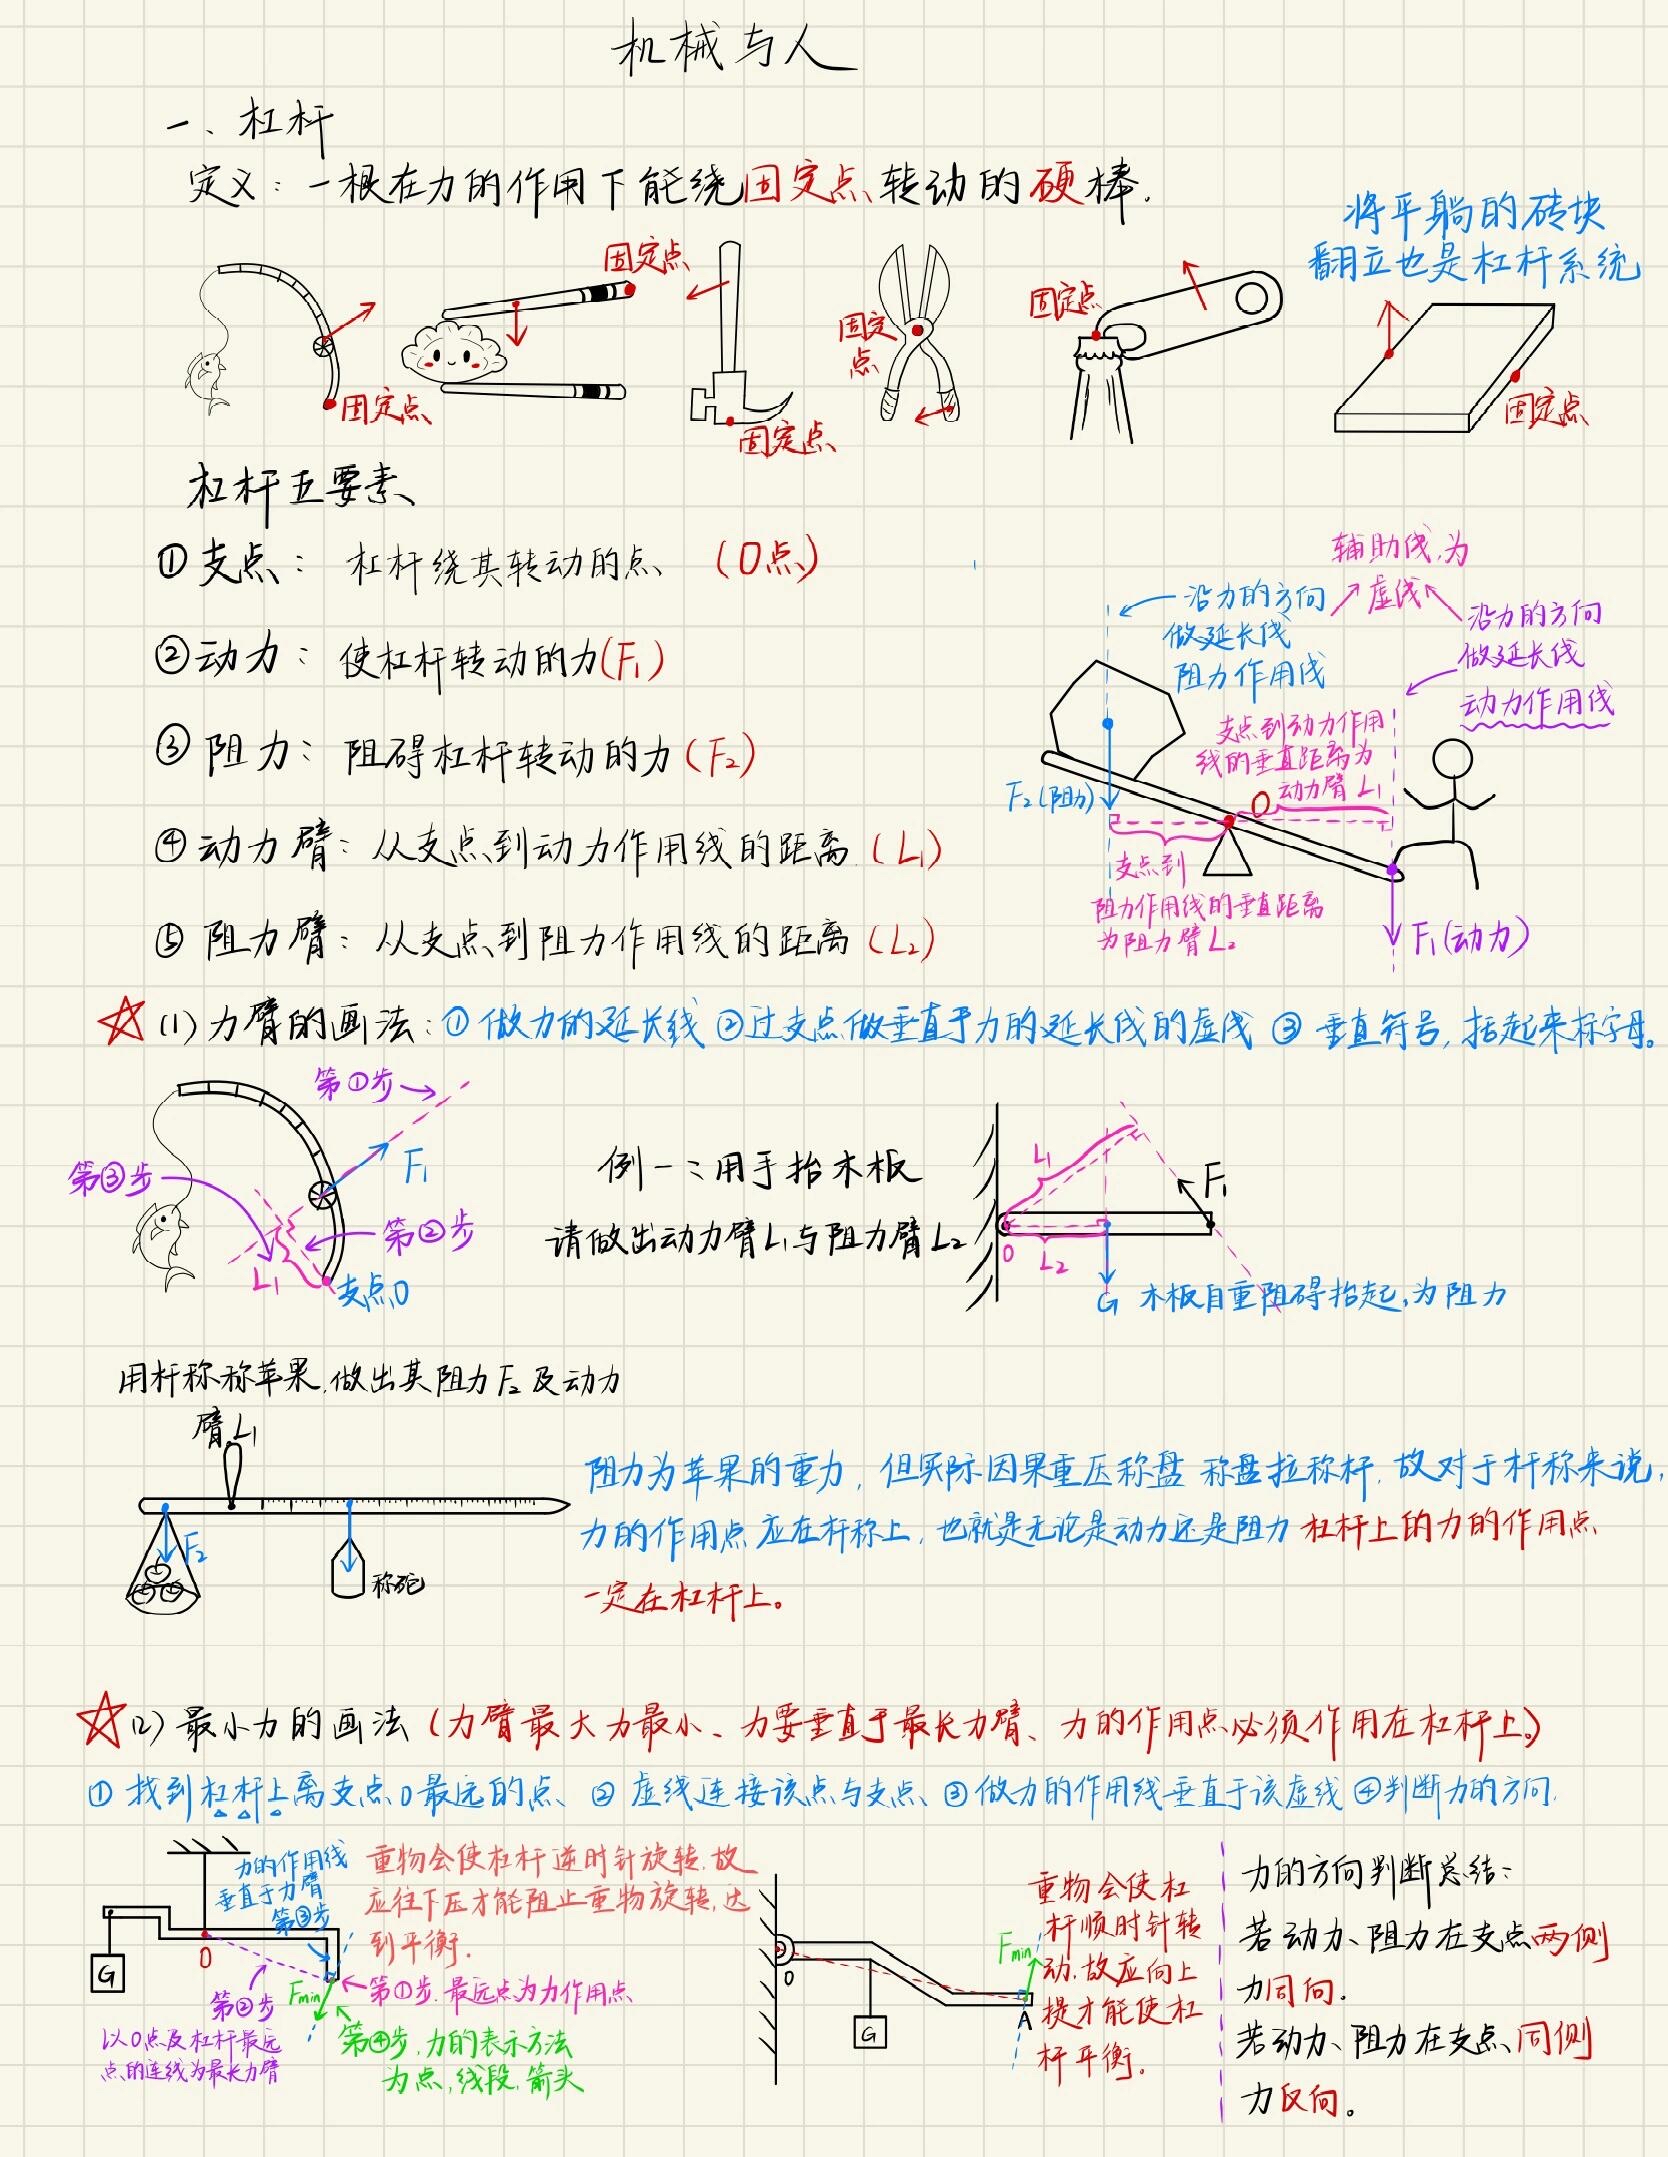 机械与人
一、杠杆
定义：一根在力的作用下能绕固定点转动的硬棒.
将平躺的砖块
翻立也是杠杆系统
固定点
固定点
固定点
固定
点
固定点
固定点
杠杆五要素
①支点： 杠杆绕其转动的点 （O点）
②动力： 使杠杆转动的力(F₁)
③阻力： 阻碍杠杆转动的力(F₂)
④动力臂： 从支点到动力作用线的距离(L₁)
⑤阻力臂： 从支点到阻力作用线的距离(L₂)
辅助线,为
虚线
沿力的方向
做延长线
阻力作用线
沿力的方向
做延长线
动力作用线
支点到动力作用
线的垂直距离为
动力臂L₁
F₂(阻力)
O
支点到
阻力作用线的垂直距离
为阻力臂L₂
F₁(动力)
☆(1)力臂的画法：①做力的延长线 ②过支点做垂直于力的延长线的虚线 ③垂直符号,括起来标字母。
第①步
F₁
第③步
第②步
L₁
支点O
例一：用手抬木板
请做出动力臂L₁与阻力臂L₂
L₁
F₁
O
L₂
G 木板自重阻碍抬起,为阻力
用杆称称苹果,做出其阻力F₂及动力
臂L₁
F₂
称砣
阻力为苹果的重力, 但实际因果重压称盘 称盘拉称杆, 故对于杆称来说,
力的作用点应在杆称上, 也就是无论是动力还是阻力 杠杆上的力的作用点
一定在杠杆上。
☆(2)最小力的画法(力臂最大力最小、力要垂直于最长力臂、力的作用点必须作用在杠杆上。)
①找到杠杆上离支点O最远的点、②虚线连接该点与支点、③做力的作用线垂直于该虚线 ④判断力的方向.
力的作用线
垂直于力臂
第③步
重物会使杠杆逆时针旋转,故
应往下压才能阻止重物旋转,达
到平衡.
G
O
第②步
以O点及杠杆最远
点的连线为最长力臂
Fmin
第①步.最远点为力作用点
第④步,力的表示方法
为点,线段,箭头
O
G
Fmin
A
重物会使杠
杆顺时针转
动,故应向上
提才能使杠
杆平衡.
力的方向判断总结：
若动力、阻力在支点两侧
力同向.
若动力、阻力在支点同侧
力反向。